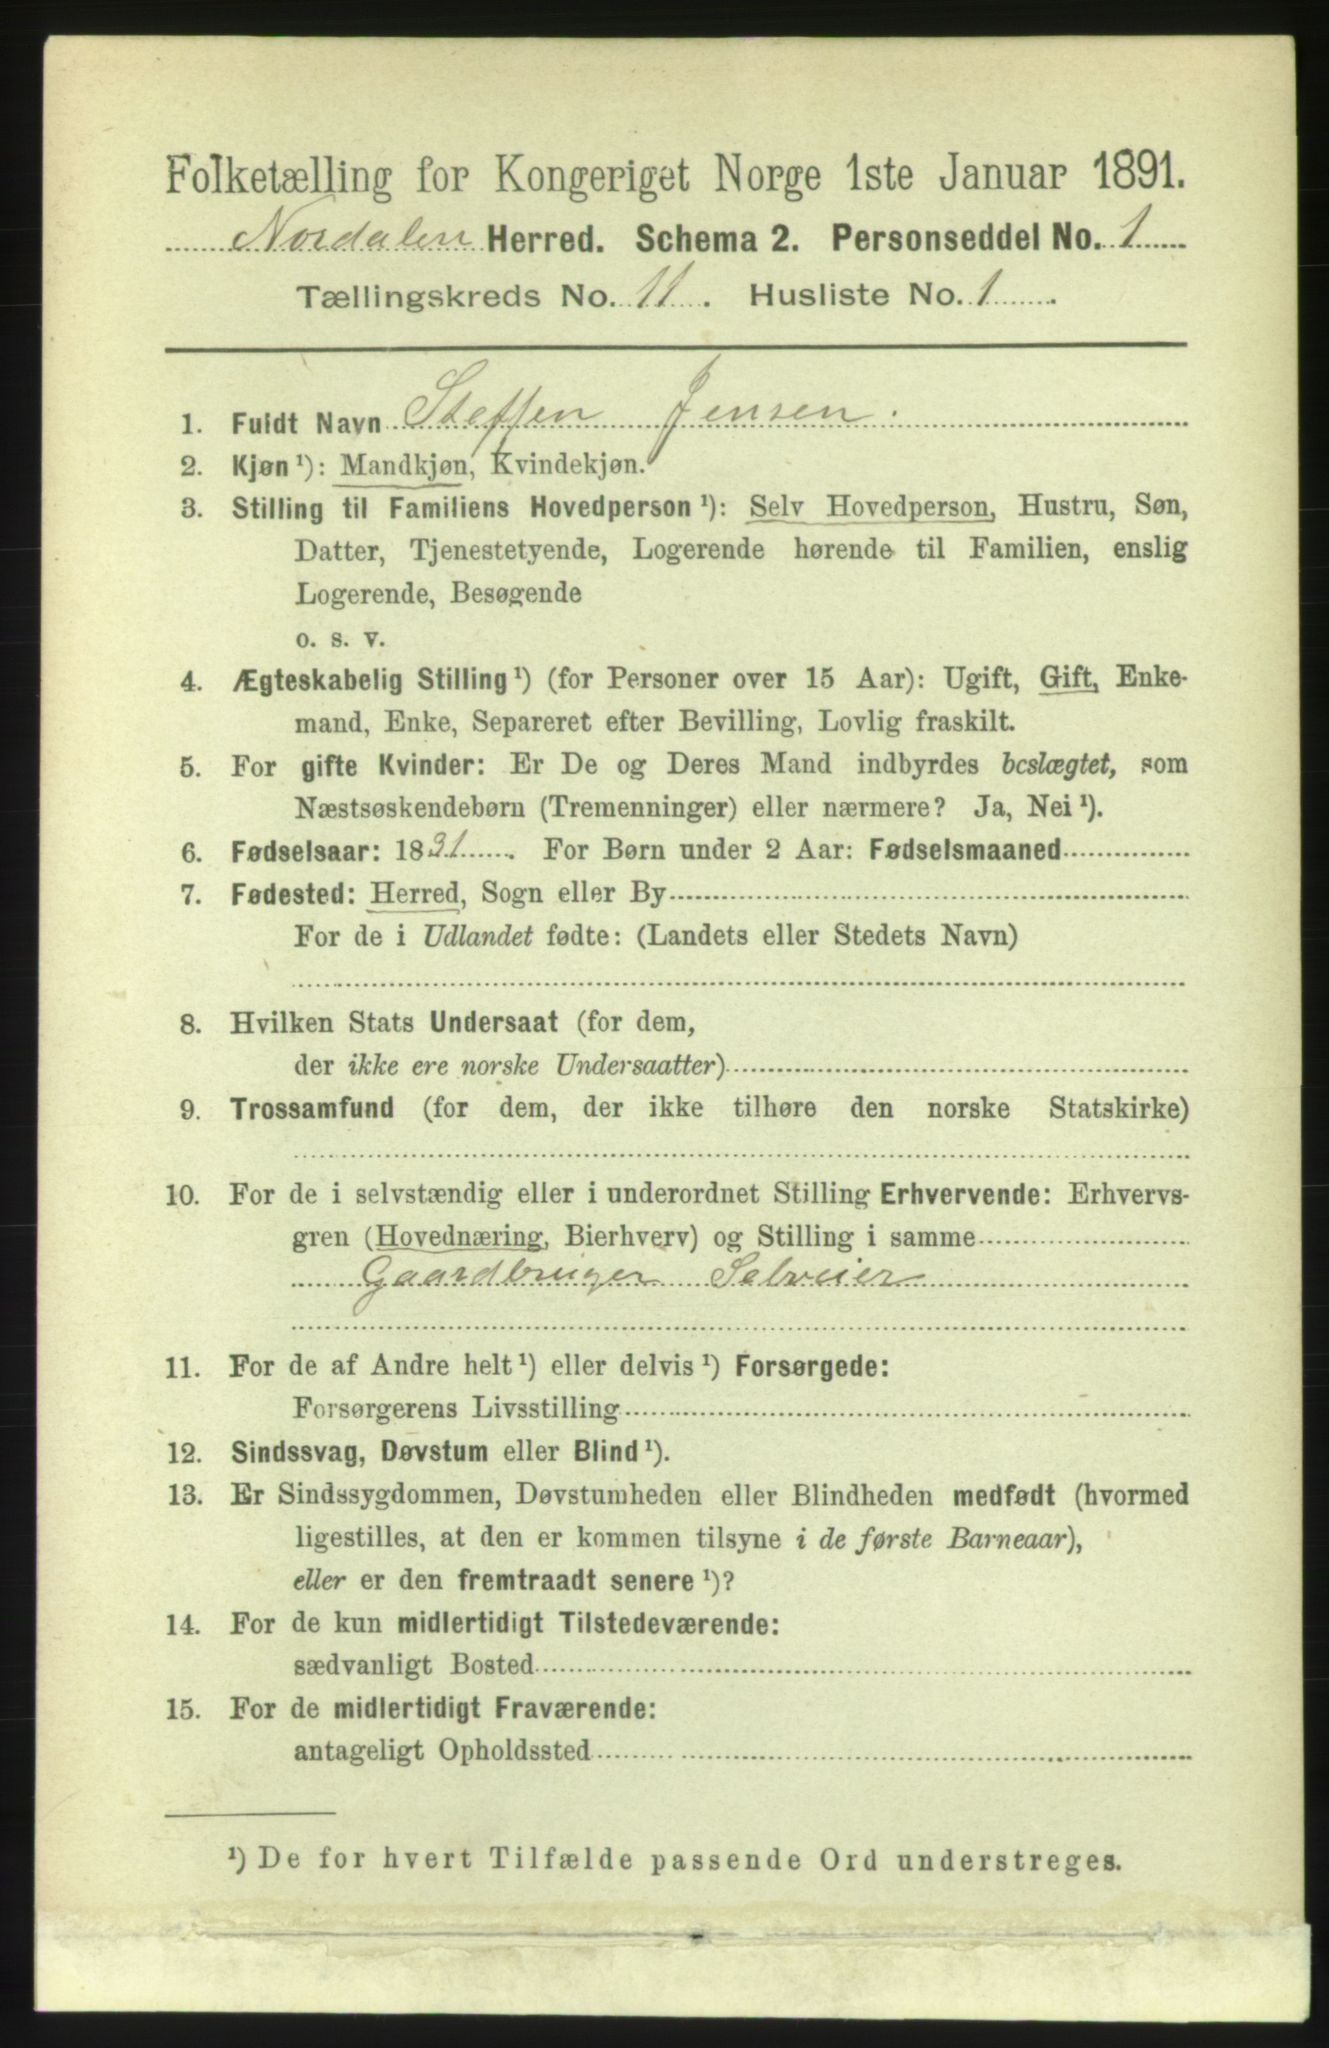 Folketælling for Kongeriget Norge 1ste Januar 1891.
Nordalen Herred. Schema 2. Personseddel No. 1
Tællingskreds No. 11. Husliste No. 1.
1. Fuldt Navn Steffen Jensen.
2. Kjøn¹): Mandkjøn, Kvindekjøn.
3. Stilling til Familiens Hovedperson¹): Selv Hovedperson, Hustru, Søn,
Datter, Tjenestetyende, Logerende hørende til Familien, enslig
Logerende, Besøgende
o. s. v.
4. Ægteskabelig Stilling¹) (for Personer over 15 Aar): Ugift, Gift, Enke-
mand, Enke, Separeret efter Bevilling, Lovlig fraskilt.
5. For gifte Kvinder: Er De og Deres Mand indbyrdes beslægtet, som
Næstsøskendebørn (Tremenninger) eller nærmere? Ja, Nei¹).
6. Fødselsaar: 1831. For Børn under 2 Aar: Fødselsmaaned
7. Fødested: Herred, Sogn eller By
For de i Udlandet fødte: (Landets eller Stedets Navn)
8. Hvilken Stats Undersaat (for dem,
der ikke ere norske Undersaatter)
9. Trossamfund (for dem, der ikke tilhøre den norske Statskirke)
10. For de i selvstændig eller i underordnet Stilling Erhvervende: Erhvervs-
gren (Hovednæring, Bierhverv) og Stilling i samme
Gaardbruger Selveier
11. For de af Andre helt¹) eller delvis¹) Forsørgede:
Forsørgerens Livsstilling
12. Sindssvag, Døvstum eller Blind¹).
13. Er Sindssygdommen, Døvstumheden eller Blindheden medfødt (hvormed
ligestilles, at den er kommen tilsyne i de første Barneaar),
eller er den fremtraadt senere¹)?
14. For de kun midlertidigt Tilstedeværende:
sædvanligt Bosted
15. For de midlertidigt Fraværende:
antageligt Opholdssted
¹) De for hvert Tilfælde passende Ord understreges.